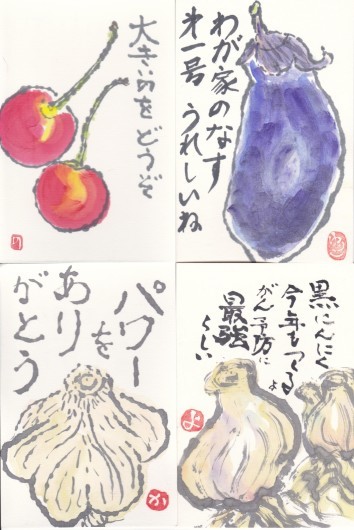 大きいのをどうぞ
わが家のなす
第一号 うれしいね
パワーを
あり
がとう
か
黒にんにく
今年もつくるよ
がん予防に
最強
らしい
よ